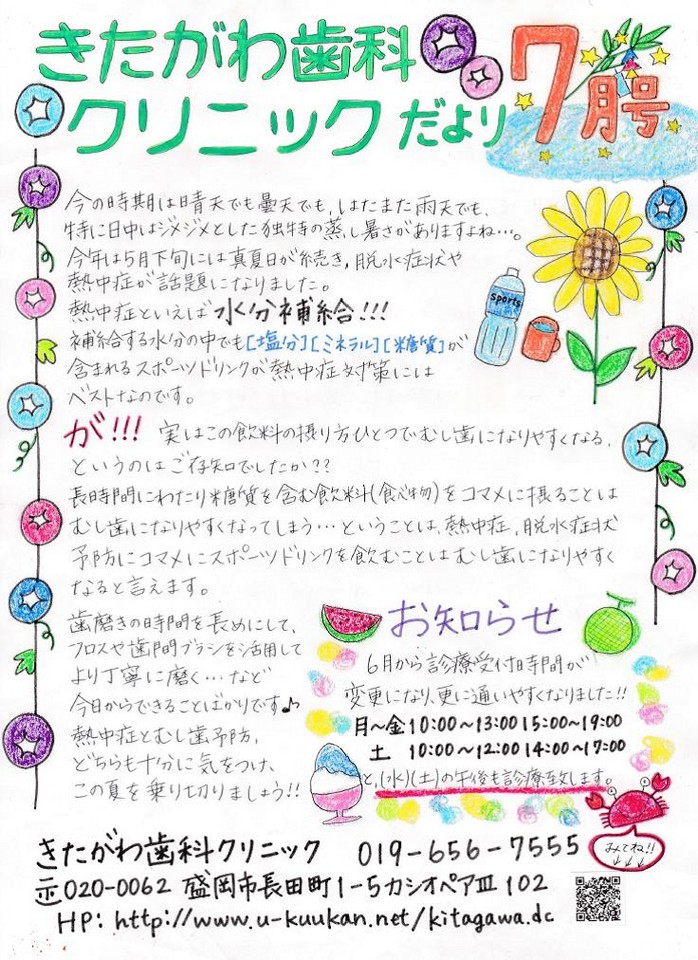 きたがわ歯科
クリニックだより
7月号
今の時期は晴天でも曇天でも、はたまた雨天でも、
特に日中はジメジメとした独特の蒸し暑さがありますよね…。
今年は5月下旬には真夏日が続き、脱水症状や
熱中症が話題になりました。
熱中症といえば水分補給!!!
補給する水分の中でも[塩分][ミネラル][糖質]が
含まれるスポーツドリンクが熱中症対策には
ベストなのです。
sports
が!!! 実はこの飲料の摂り方ひとつでむし歯になりやすくなる、
というのはご存知でしたか??
長時間にわたり糖質を含む飲料(食べ物)をコマメに摂ることは
むし歯になりやすくなってしまう…ということは、熱中症、脱水症状
予防にコマメにスポーツドリンクを飲むことはむし歯になりやすく
なると言えます。
歯磨きの時間を長めにして、
フロスや歯間ブラシを活用して
より丁寧に磨く…など
今日からできることばかりです♪
熱中症とむし歯予防、
どちらも十分に気をつけ、
この夏を乗り切りましょう!!
お知らせ
6月から診療受付時間が
変更になり、更に通いやすくなりました!!
月～金 10:00~13:00 15:00~19:00
土 10:00~12:00 14:00~17:00
と、(水)(土)の午後も診療致します。
みてね!!
↓↓↓
きたがわ歯科クリニック 019-656-7555
〒020-0062 盛岡市長田町1-5カシオペアⅢ 102
HP: http://www.u-kuukan.net/kitagawa.dc